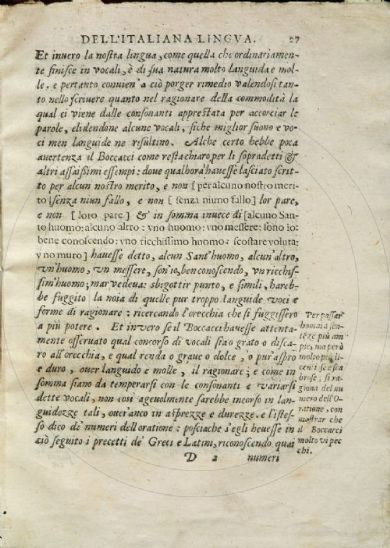 DELL'ITALIANA LINGVA. 27
Et invero la nostra lingua, come quella che ordinariamen-
te finisce in vocali, è di sua natura molto languida e mol-
le, e pertanto convien' a ciò porger rimedio valendosi tan-
to nello scrivere quanto nel ragionare della commodità la
qual ci viene dalle consonanti apprestata per accorciar le
parole, elidendone alcune vocali, siche miglior suono e vo-
ci men languide ne risultino. Alche certo hebbe poca
avertenza il Boccacci come resta chiaro per li sopradetti &
altri assaissimi essempi: dove qualhora havesse lasciato scrit-
to per alcun nostro merito, e non [per alcuno nostro meri-
to] senza niun fallo, e non [senza niuno fallo] lor pare,
e non [loro pare] & in somma invece di [alcuno San-
to huomo: alcuno altro: vno huomo: vno messere: sono io:
bene conoscendo: vno ricchissimo huomo: scostare voluta:
vno muro] havesse detto, alcun Sant' huomo, alcun' altro,
vn' huomo, vn messere, son' io, ben conoscendo, vn ricchis-
sim' huomo; mar vedeva: sbigottir punto, e simili, hareb-
be fuggito la nota di quelle pur troppo languide voci e
forme di ragionare: ricercando l'orecchia che si fuggissero
a più potere. Et in vero se il Boccacci havesse attenta-
mente osservato qual concorso di vocali sia o grato o disca-
ro all'orecchia, e qual renda o grave o dolce, o pur aspro
e duro, over languido e molle, il ragionare; e come in
somma siano da temperarsi con le consonanti e variarsi
dette vocali, non così agevolmente sarebbe incorso in lan-
guidezze tali, over' anco in asprezze e durezze. e l'istes-
so dico de' numeri dell'oratione: posciache s'egli havesse in
ciò seguito i precetti de' Greci e Latini, riconoscendo quai
D 2 numeri
Per passar
hora ai sen-
tēze piu am
pie, mo però
molto più li
cen
brie; si ri-
giona del nu
mero dell'O-
ratione, con
mostrar che
il Boccacci
molto vi pec
chi.